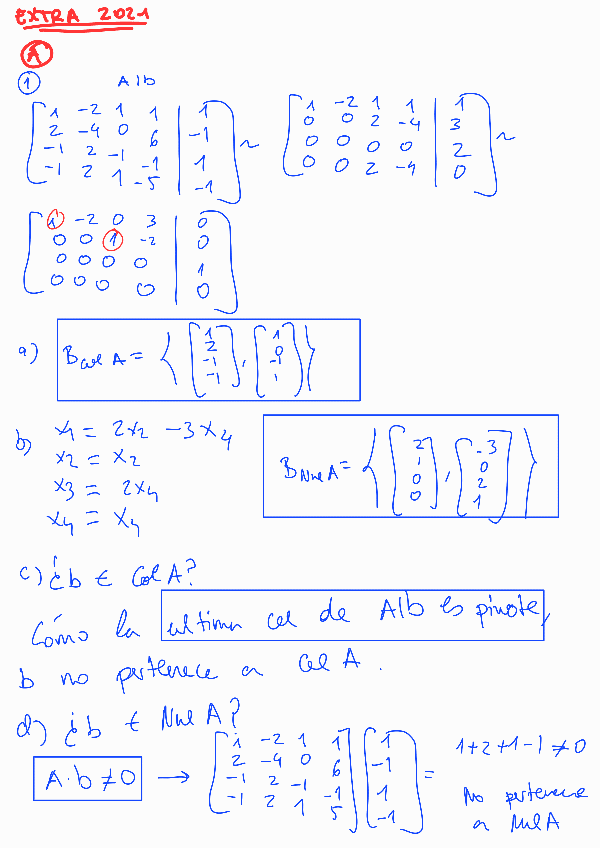 EXTRA 2021
A
1 A|b
[1 -2 1 1 | 1] ~ [1 -2 1 1 | 1] ~
[2 -4 0 6 | -1] [0 0 2 -4 | 3]
[-1 2 -1 -1 | 1] [0 0 0 0 | 2]
[-1 2 1 -5 | -1] [0 0 2 -4 | 0]
[1 -2 0 3 | 0]
[0 0 1 -2 | 0]
[0 0 0 0 | 1]
[0 0 0 0 | 0]
a) B Col A = { [1 2 -1 -1], [1 0 -1 1] }
b) x1 = 2x2 - 3x4
x2 = x2
x3 = 2x4
x4 = x4
B Nul A = { [2 1 0 0], [-3 0 2 1] }
c) ¿b ∈ Col A?
Cómo la ultima col de A|b es pivote,
b no pertenece a col A.
d) ¿b ∈ Nul A?
A·b ≠ 0 → [1 -2 1 1] [1] = 1+2+1-1 ≠ 0
[2 -4 0 6] [-1]
[-1 2 -1 -1] [1] No pertenece
[-1 2 1 5] [-1] a Nul A